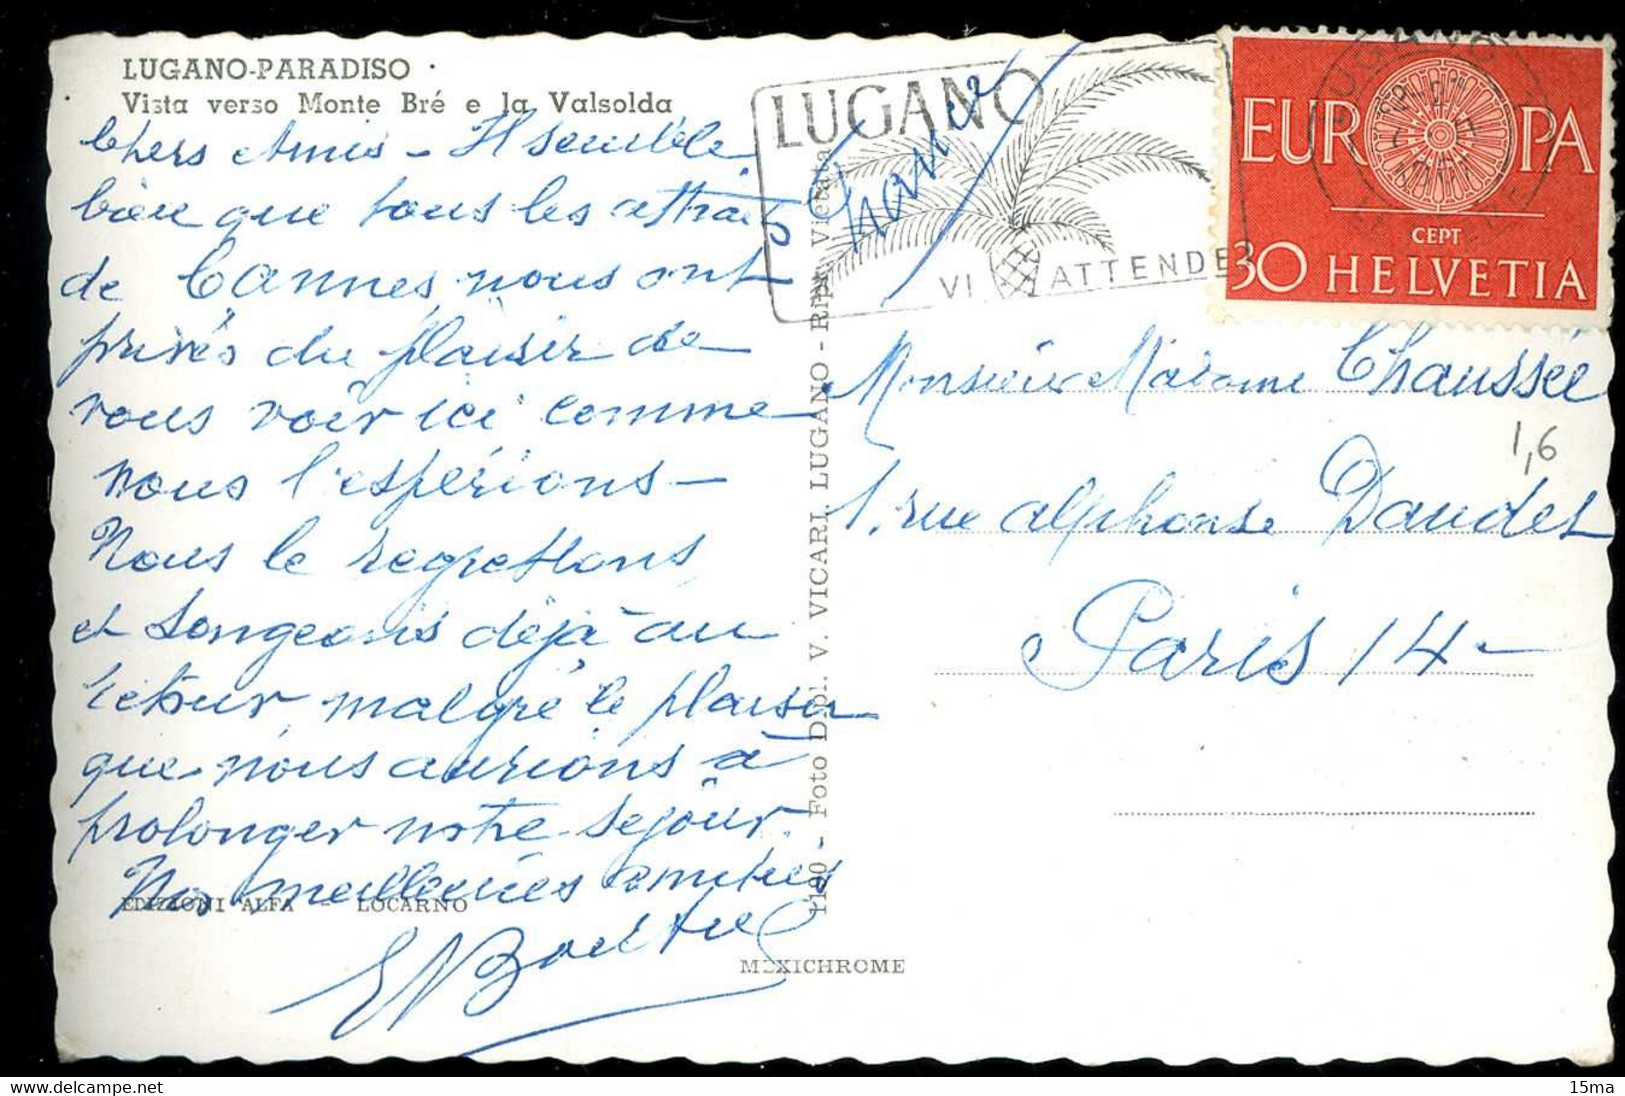 LUGANO-PARADISO
Vista verso Monte Bré e la Valsolda
Chers Amis - Il semble
bien que tous les attraits
de Cannes nous ont
privés du plaisir de
vous voir ici comme
nous l'espérions -
Nous le regrettons
et songeons déjà au
retour malgré le plaisir
que nous aurions à
prolonger notre séjour.
Nos meilleures amitiés
EDIZIONI ALFA - LOCARNO
MEXICHROME
1120 - Foto Dipl. V. VICARI, LUGANO - Ripr. Vietata
LUGANO
VI ATTENDE
EUROPA
CEPT
30 HELVETIA
LUGANO
Monsieur Madame Chaussée
1, rue alphonse Daudet
Paris 14 -
1,6
15ma
www.delcampe.net